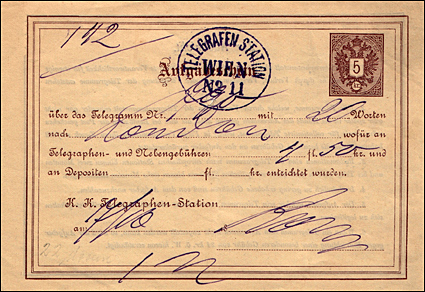 142
TELEGRAFEN STATION
WIEN
No 11
Aufgabsschein
5
über das Telegramm Nr. mit 20 Worten
nach London wofür an
Telegraphen- und Nebengebühren 4 fl. 50 kr. und
an Depositen fl. kr. entrichtet wurden.
K. K. Telegraphen-Station